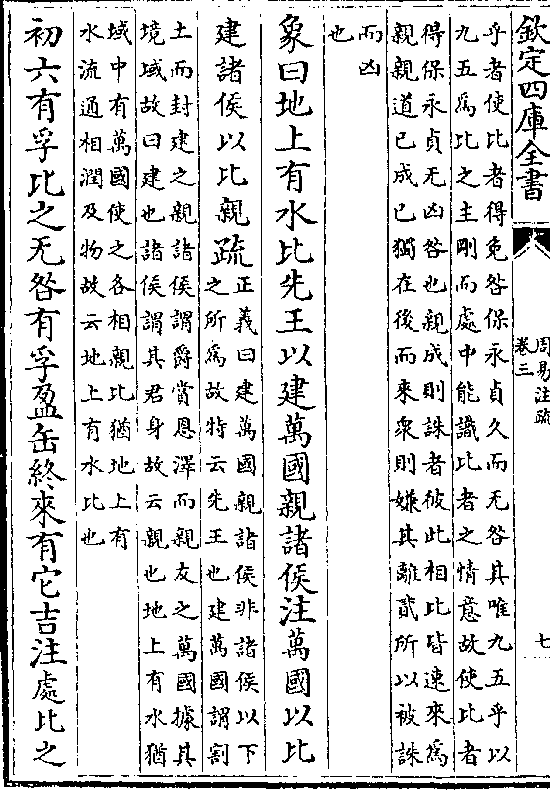 欽定四庫全書
周易注疏
卷三
七
乎者使比者得免咎保永貞久而无咎其唯九五乎以
九五爲比之主剛而處中能識比者之情意故使比者
得保永貞无凶咎也親成則誅者彼此相比皆速來爲
親親道已成已獨在後而來衆則嫌其離貳所以被誅
而凶
也
象曰地上有水比先王以建萬國親諸侯注萬國以比
建諸侯以比親疏正義曰建萬國親諸侯非諸侯以下
之所爲故特云先王也建萬國謂割
土而封建之親諸侯謂爵賞恩澤而親友之萬國據其
境域故曰建也諸侯謂其君身故云親也地上有水猶
域中有萬國使之各相親比猶地上有
水流通相潤及物故云地上有水比也
初六有孚比之无咎有孚盈缶終來有它吉注處比之